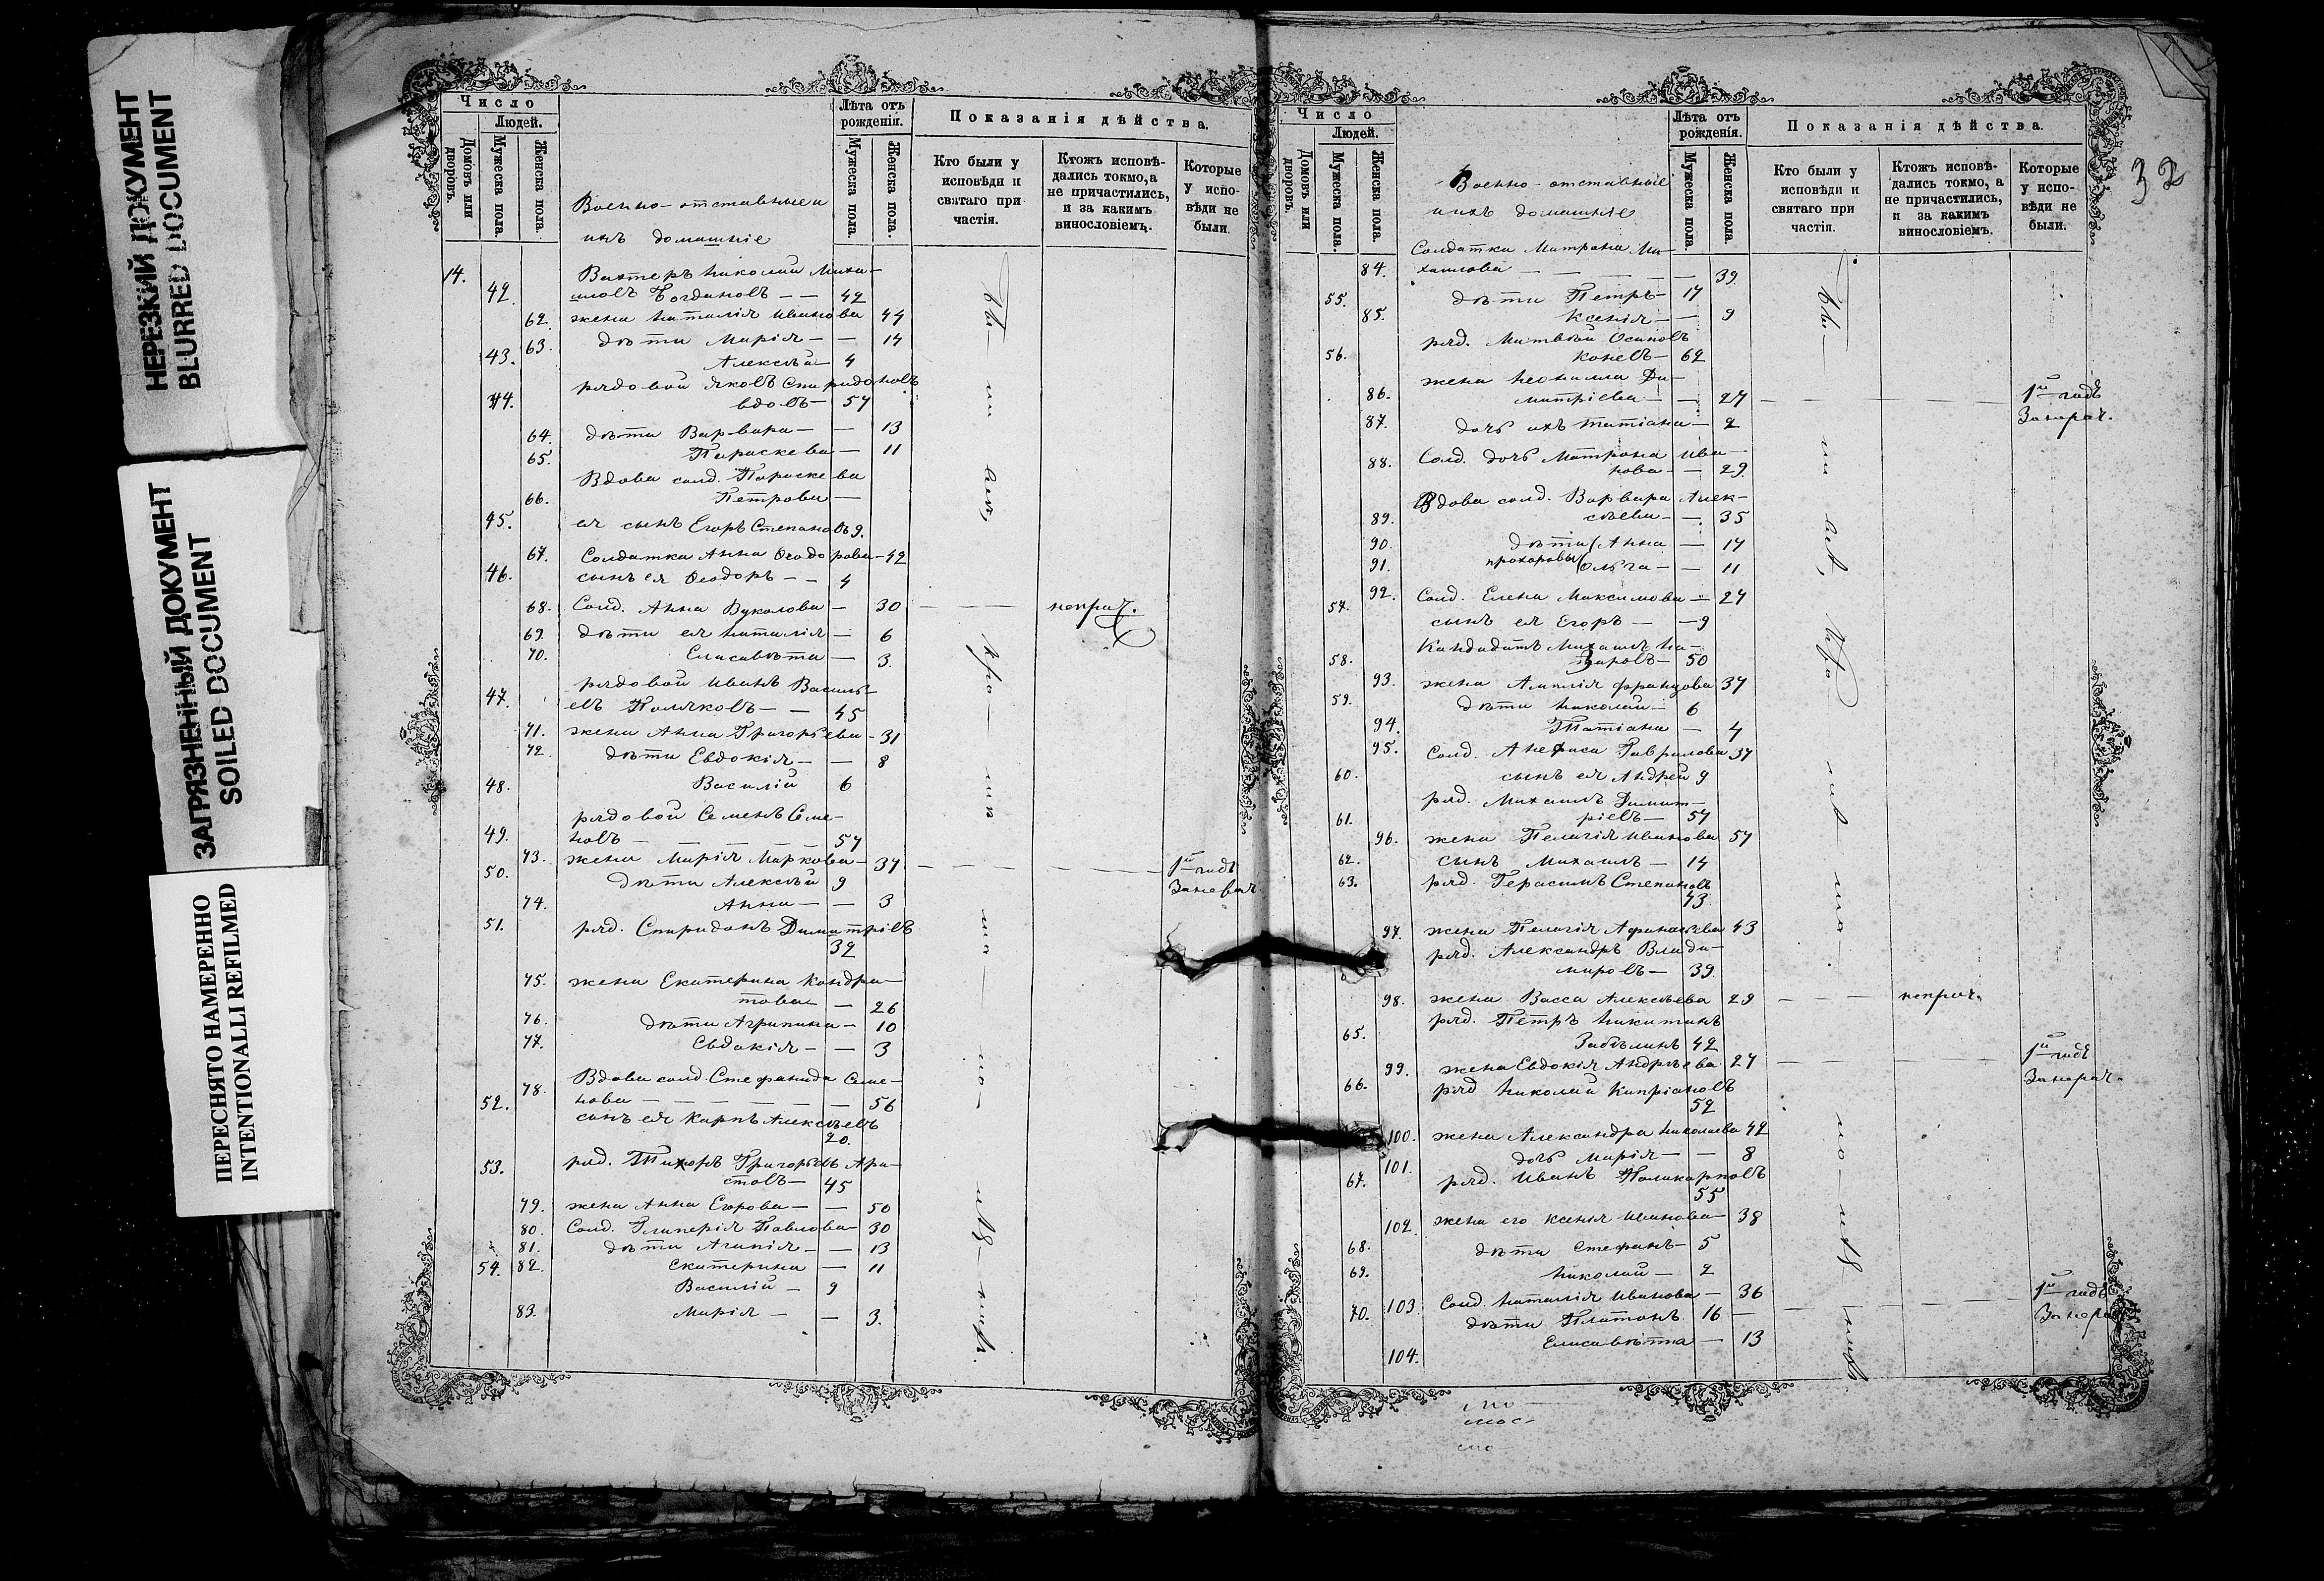 НЕРЕЗКИЙ ДОКУМЕНТ
BLURRED DOCUMENT
ЗАГРЯЗНЕННЫЙ ДОКУМЕНТ
SOILED DOCUMENT
ПЕРЕСНЯТО НАМЕРЕННО
INTENTIONALLI REFILMED
Число
Людей.
Домовъ или дворовъ.
Мужеска пола.
Женска пола.
Военно-отставные и
ихъ домашніе
Лѣта отъ рожденія.
Мужеска пола.
Женска пола.
Показанія дѣйства.
Кто были у исповѣди и святаго причастія.
Ктожъ исповѣдались токмо, а не причастились, и за какимъ винословіемъ.
Которые у исповѣди не были.
14. Вахтеръ Николай Михаи-
42. ловъ Богдановъ — — 42
62. жена Наталія Иванова 44
63. дѣти Марія — — 14
43. Алексѣй — 4
рядовой Яковъ Спиридоновъ
44. вдовъ — 54
64. дѣти Варвара — — 13
65. Параскева — 11
Вдова солд. Параскева
66. Петрова —
45. ея сынъ Егоръ Степановъ 9.
67. Солдатка Анна Ѳеодорова — 42
46. сынъ ея Ѳеодоръ — — 4
68. Солд. Анна Вуколова — 30 — — неприч.
69. дѣти ея Наталія — 6
70. Елисавѣта — 3.
рядовой Иванъ Василь-
47. евъ Поляковъ — — 45
71. жена Анна Григорьева — 31
72. дѣти Евдокія — — 8
48. Василій 6
рядовой Семенъ Семе-
49. новъ — — — — — 54
73. жена Марія Маркова — 34 — — — 1й годъ
50. дѣти Алексѣй 9
74. Анна — — 3
51. ряд. Спиридонъ Димитріевъ
32
75. жена Екатерина Кондра-
това — — 26
76. дѣти Агрипина — 10
77. Евдокія — — 3
78. Вдова солд. Стефанида Семе-
нова — — — — — — 56
52. сынъ ея Карпъ Алексѣевъ
20.
53. ряд. Тихонъ Григорьевъ Ари-
стовъ — 45
79. жена Анна Егорова — — 50
80. Солд. Гликерія Павлова — 30
81. дѣти Агапія — — 13
54. 82. Екатерина — 11
Василій — 9
83. Марія — — 3.
32
Число
Людей.
Домовъ или дворовъ.
Мужеска пола.
Женска пола.
Военно-отставные
и ихъ домашніе
Лѣта отъ рожденія.
Мужеска пола.
Женска пола.
Показанія дѣйства.
Кто были у исповѣди и святаго причастія.
Ктожъ исповѣдались токмо, а не причастились, и за какимъ винословіемъ.
Которые у исповѣди не были.
Солдатка Матрона Ми-
84. хаилова — — — — — 39.
55. дѣти Петръ — 14
85. Ксенія — — 9
ряд. Матвѣй Осиповъ
56. Коневъ — 62
жена Неонилла Ди-
86. митріева — — 24 — — — 1й годъ
87. дочь ихъ Татіана — 2
88. Солд. дочь Матрона Ива-
нова — — 29.
Вдова солд. Варвара Алек-
89. сѣева — — 35
90. дѣти Анна — 14
91. прохоровы Ольга — — 11
92. Солд. Елена Максимова — 24
57. сынъ ея Егоръ — — 9
Кандидатъ Михаилъ На-
58. заровъ — 50
93. жена Амалія Францова 34
59. дѣти Николай — 6
94. Татіана — 4
95. Солд. Анфиса Гаврилова 34
60. сынъ ея Андрей 9
ряд. Михаилъ Димит-
61. ріевъ — 54
96. жена Пелагія Иванова 54
62. сынъ Михаилъ — 14
63. ряд. Герасимъ Степановъ
43
97. жена Пелагія Афанасьева 43
ряд. Александръ Влади-
міровъ — 39.
98. жена Васса Алексѣева 29 — — — неприч.
ряд. Петръ Никитинъ
65. Забѣлинъ 42
99. жена Евдокія Андреева 24 — — — 1й годъ
66. ряд Николай Кипріановъ
52
100. жена Александра Николаева 42
101. дочь Марія — — 8
67. ряд. Иванъ Поликарповъ
55
102. жена его Ксенія Иванова — 38
68. дѣти Стефанъ — 5
69. Николай — 2
103. Солд. Наталія Иванова — 36 — — — 1й годъ
70. дѣти Платонъ 16 —
104. Елисавѣта — 13